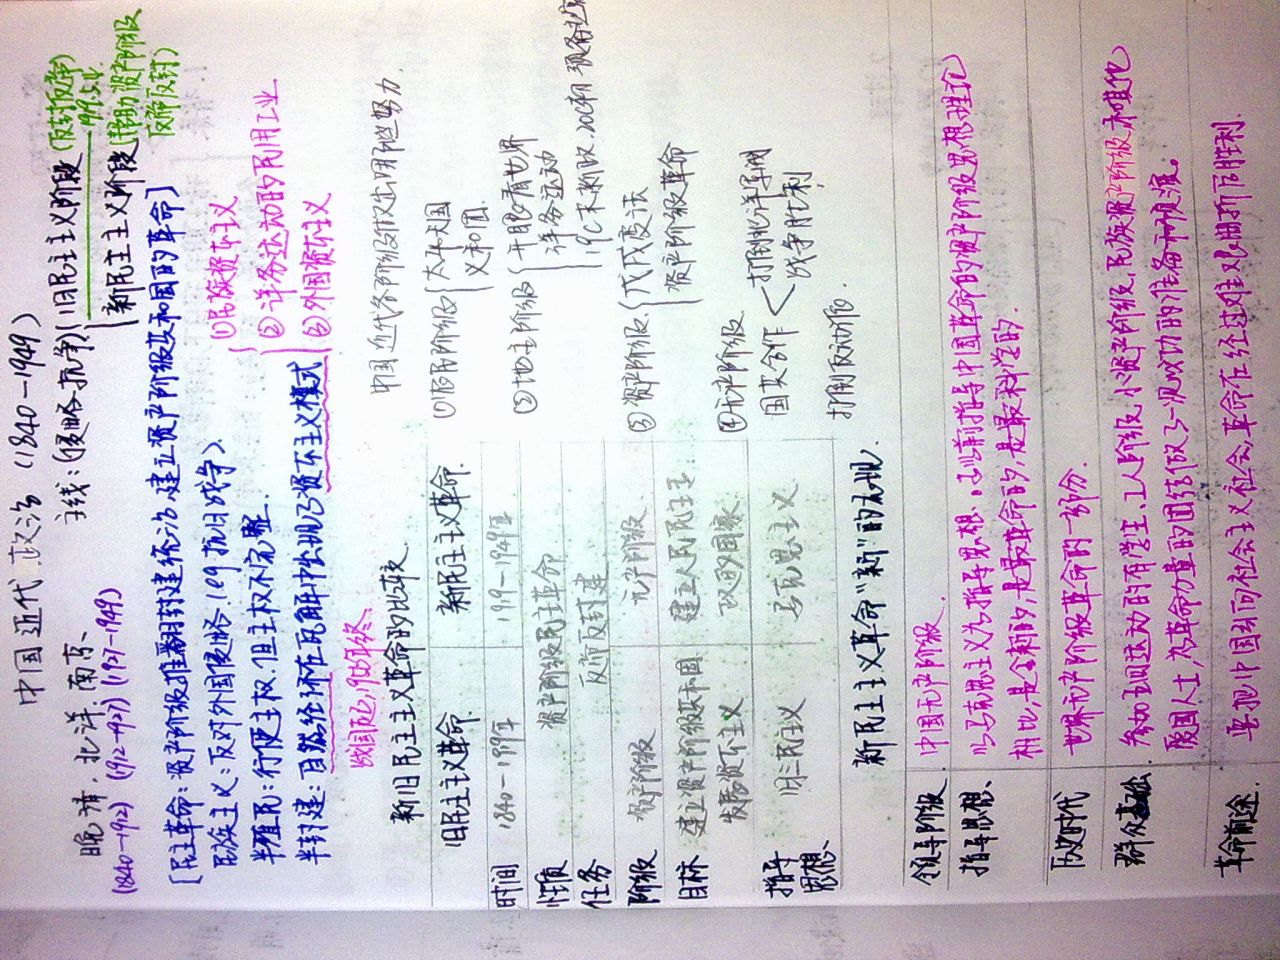 中国近代政治 (1840-1949)
晚清、北洋、南京、
(1840-1912) (1912-1927) (1927-1949)
主线:(侵略、抗争)
旧民主主义阶段 (反封反帝)
1919.5.4
新民主主义阶段 (帮助资产阶级
反帝反封)
[民主革命:资产阶级推翻封建统治、建立资产阶级共和国的革命]
民族主义:反对外国侵略.(eg 抗日战争).
半殖民:行使主权,但主权不完整.
半封建:自然经济在瓦解中出现了资本主义模式
①民族资本主义
②洋务运动的民用工业
③外国资本主义
战国起,1956年终.
新旧民主主义革命的比较.
旧民主主义革命. 新民主主义革命
时间 1840-1919年 1919-1949年
性质 资产阶级民主革命
任务 反帝反封建
阶级 资产阶级 无产阶级.
目标 建立资产阶级共和国 建立人民民主专
发展资本主义. 政的国家
指导 旧三民主义 马克思主义
思想、
中国近代各阶级做出哪些努力.
①农民阶级 太平天国
义和团.
②地主阶级 开眼看世界
洋务运动
19C末新政、20C初 预备立宪
③资产阶级. 戊戌变法
资产阶级革命
④无产阶级
国共合作 打倒北洋军阀
战争胜利
打倒反动派.
新民主主义革命"新"的表现.
领导阶级. 中国无产阶级.
指导思想、 以马克思主义为指导思想、与以前指导中国革命的资产阶级思想理论
相比,是全新的,是最革命的,是最科学的.
历史时代 世界无产阶级革命的一部分.
群众基础. 参加五四运动的有学生、工人阶级、小资产阶级、民族资产阶级和其他
爱国人士,为革命力量的团结做了一次成功的准备和预演。
革命前途. 要把中国引向社会主义社会,革命在经过艰难曲折后胜利.